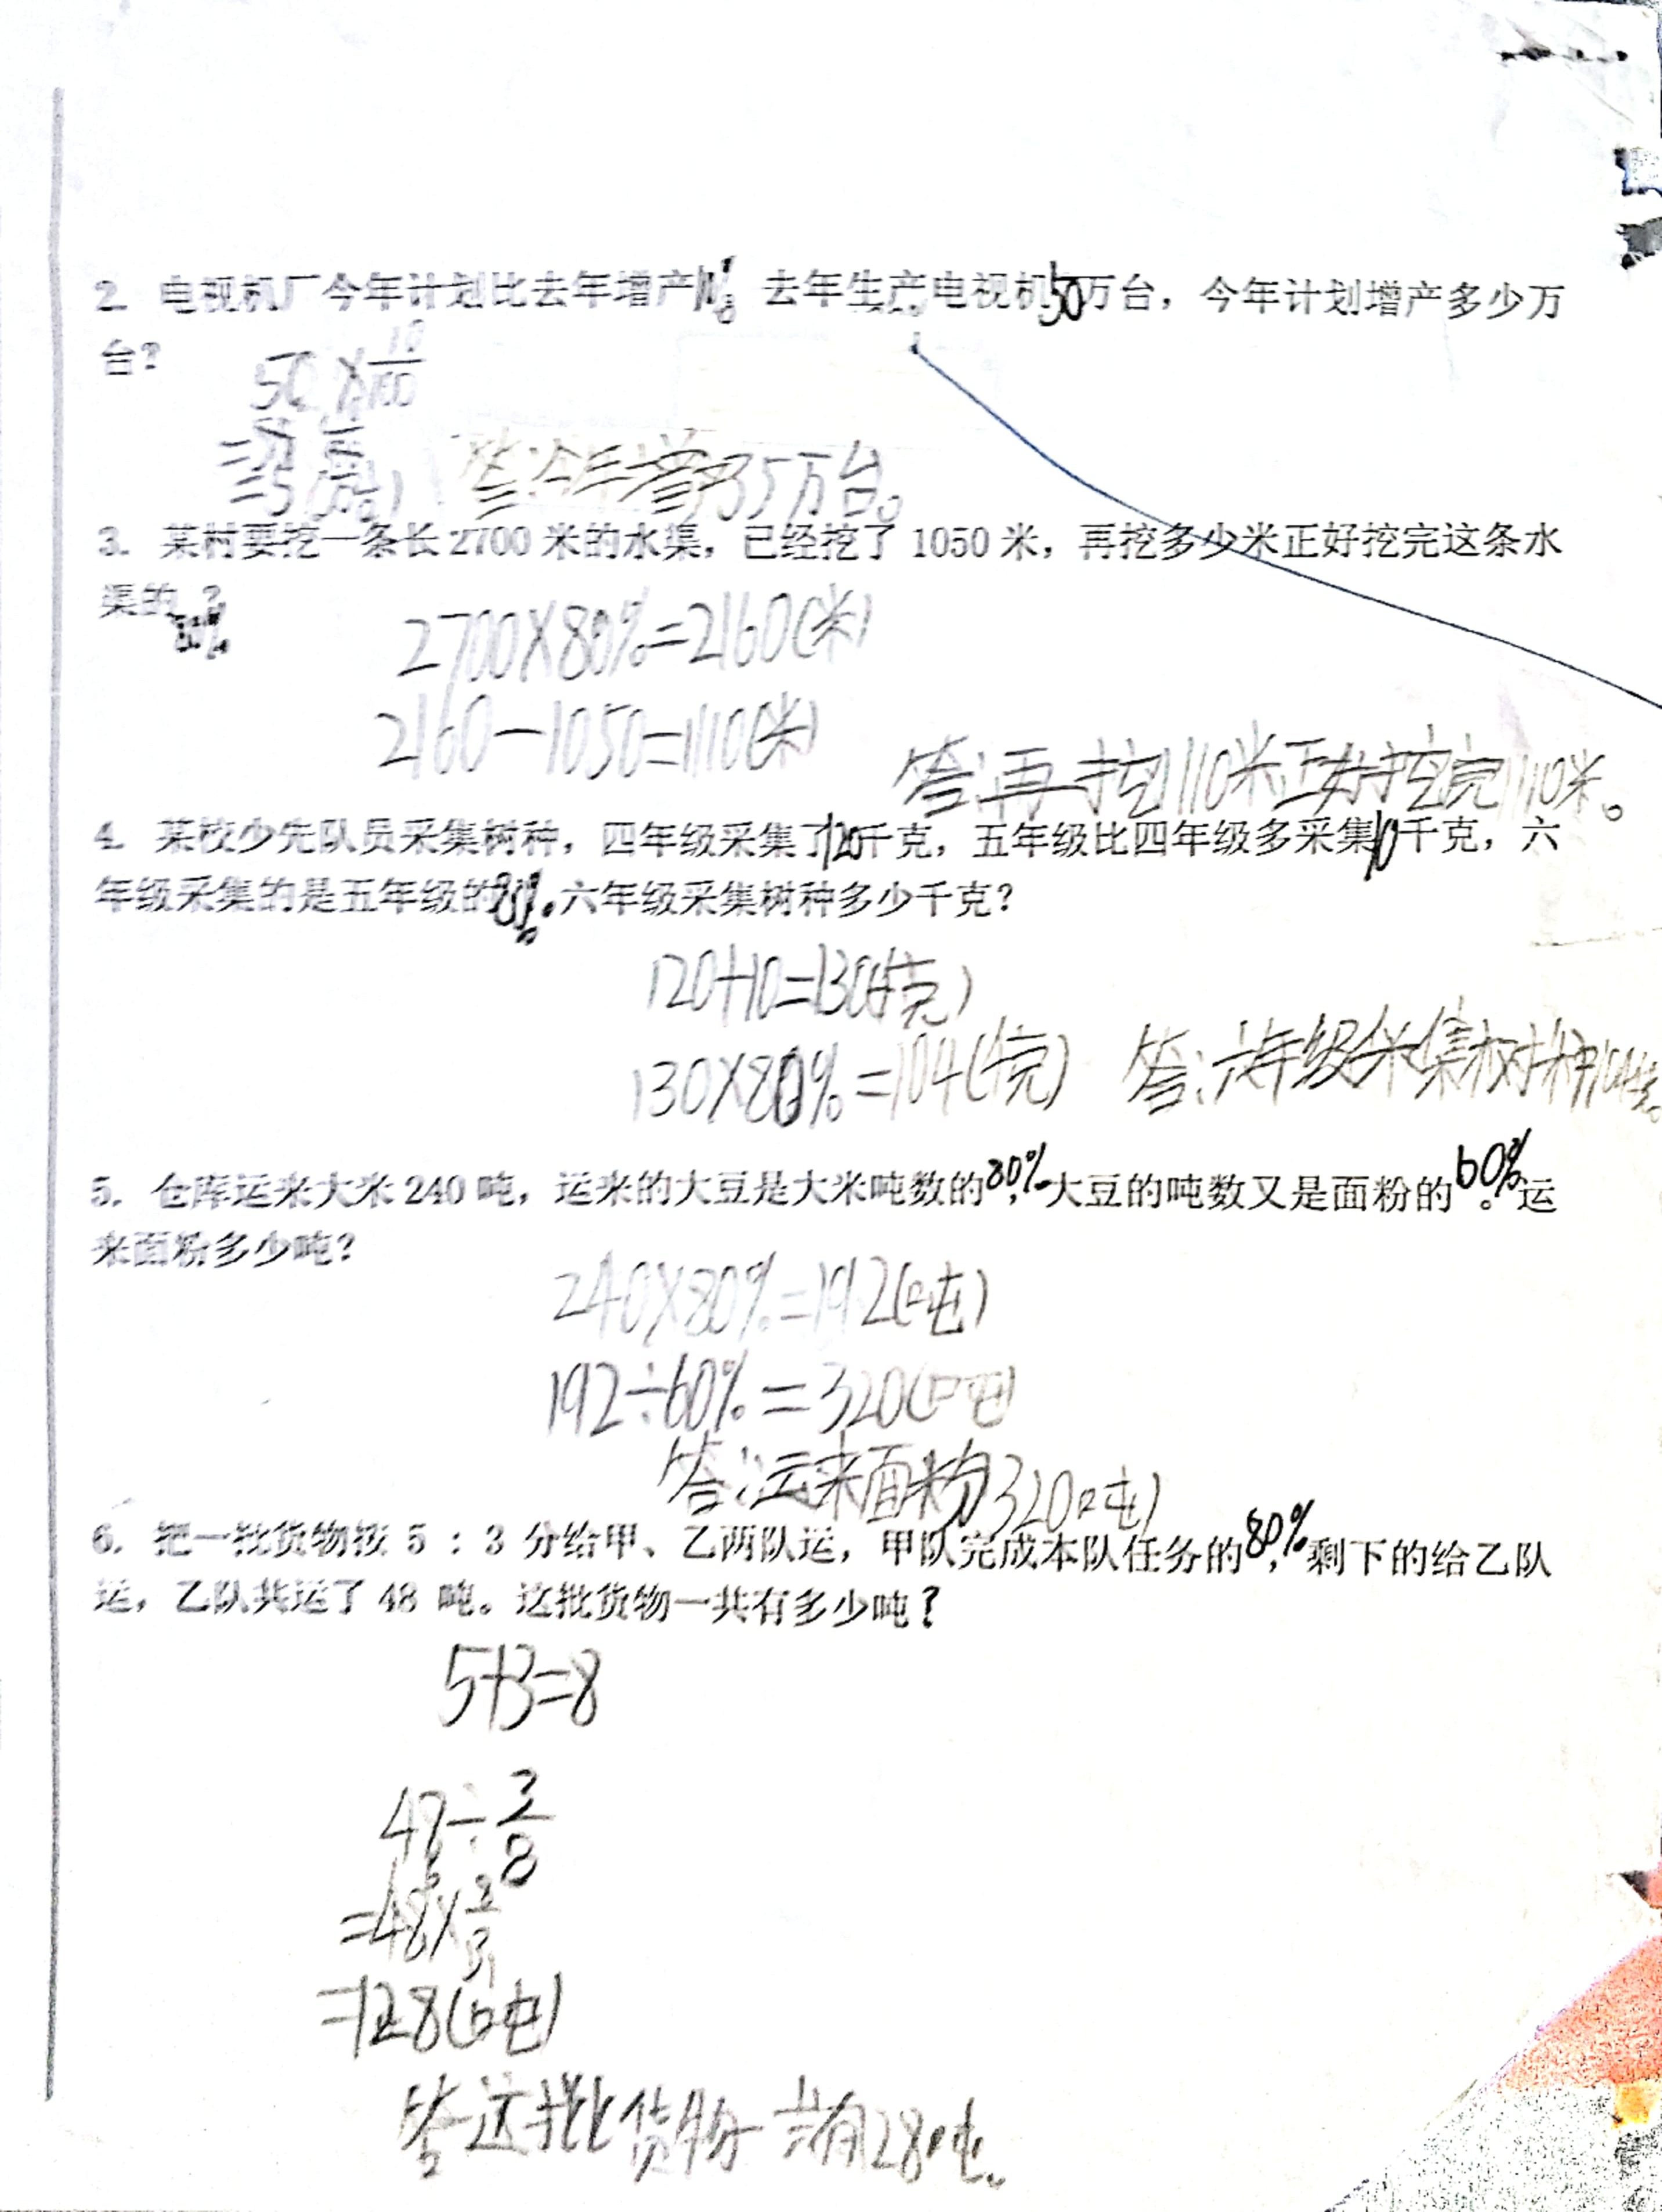 2. 电视机厂今年计划比去年增产 去年生产电视机50万台，今年计划增产多少万
台？
50×10/100
=5(万台)
答:今年增产5万台。
3. 某村要挖一条长2700米的水渠，已经挖了1050米，再挖多少米正好挖完这条水
渠的80%？
2700×80%=2160(米)
2160-1050=1110(米)
答:再挖1110米正好挖完1110米。
4. 某校少先队员采集树种，四年级采集了120千克，五年级比四年级多采集10千克，六
年级采集的是五年级的80%。六年级采集树种多少千克？
120+10=130(千克)
130×80%=104(千克)
答:六年级采集树种104千克。
5. 仓库运来大米240吨，运来的大豆是大米吨数的80%，大豆的吨数又是面粉的60%。运
来面粉多少吨？
240×80%=192(吨)
192÷60%=320(吨)
答:运来面粉320吨)
6. 把一批货物按5:3分给甲、乙两队运，甲队完成本队任务的80%，剩下的给乙队
运，乙队共运了48吨。这批货物一共有多少吨？
5+3=8
48÷3/8
=48×8/3
=128(吨)
答这批货物一共有128吨。